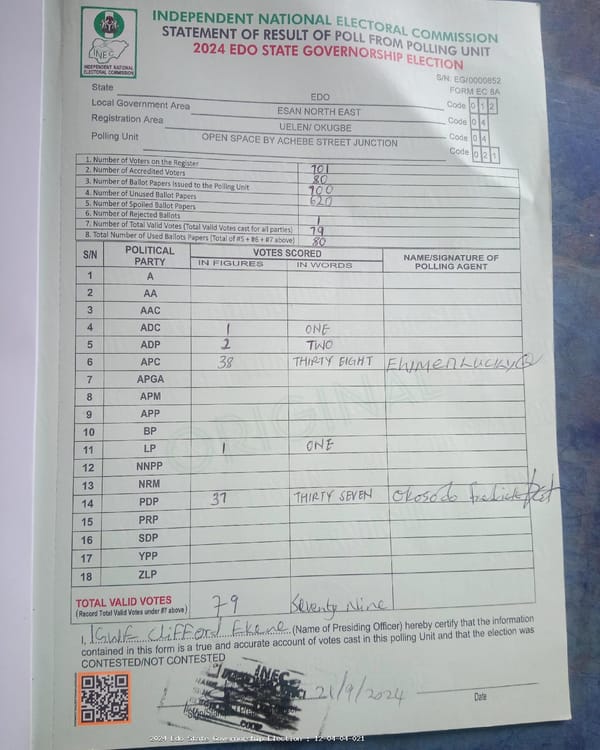 INDEPENDENT NATIONAL ELECTORAL COMMISSION
STATEMENT OF RESULT OF POLL FROM POLLING UNIT
2024 EDO STATE GOVERNORSHIP ELECTION
INEC
INDEPENDENT NATIONAL
ELECTORAL COMMISSION
S/N: EG/0000852
FORM EC 8A
State EDO Code 0 1 2
Local Government Area ESAN NORTH EAST Code 0 4
Registration Area UELEN/ OKUGBE Code 0 4
Polling Unit OPEN SPACE BY ACHEBE STREET JUNCTION Code 0 2 1
1. Number of Voters on the Register 701
2. Number of Accredited Voters 80
3. Number of Ballot Papers Issued to the Polling Unit 700
4. Number of Unused Ballot Papers 620
5. Number of Spoiled Ballot Papers
6. Number of Rejected Ballots 1
7. Number of Total Valid Votes (Total Valid Votes cast for all parties) 79
8. Total Number of Used Ballots Papers (Total of #5 + #6 + #7 above) 80
S/N POLITICAL PARTY VOTES SCORED NAME/SIGNATURE OF POLLING AGENT
IN FIGURES IN WORDS
1 A
2 AA
3 AAC
4 ADC 1 ONE
5 ADP 2 TWO
6 APC 38 THIRTY EIGHT Ehimen Lucky
7 APGA
8 APM
9 APP
10 BP
11 LP 1 ONE
12 NNPP
13 NRM
14 PDP 37 THIRTY SEVEN Okosodo
15 PRP
16 SDP
17 YPP
18 ZLP
TOTAL VALID VOTES 79 Seventy Nine
(Record Total Valid Votes under #7 above)
I, IGWE Clifford Ekene (Name of Presiding Officer) hereby certify that the information
contained in this form is a true and accurate account of votes cast in this polling Unit and that the election was
CONTESTED/NOT CONTESTED
INEC
21/9/2024
Date
ORIGINAL
2024 Edo State Governorship Election : 12-04-04-021